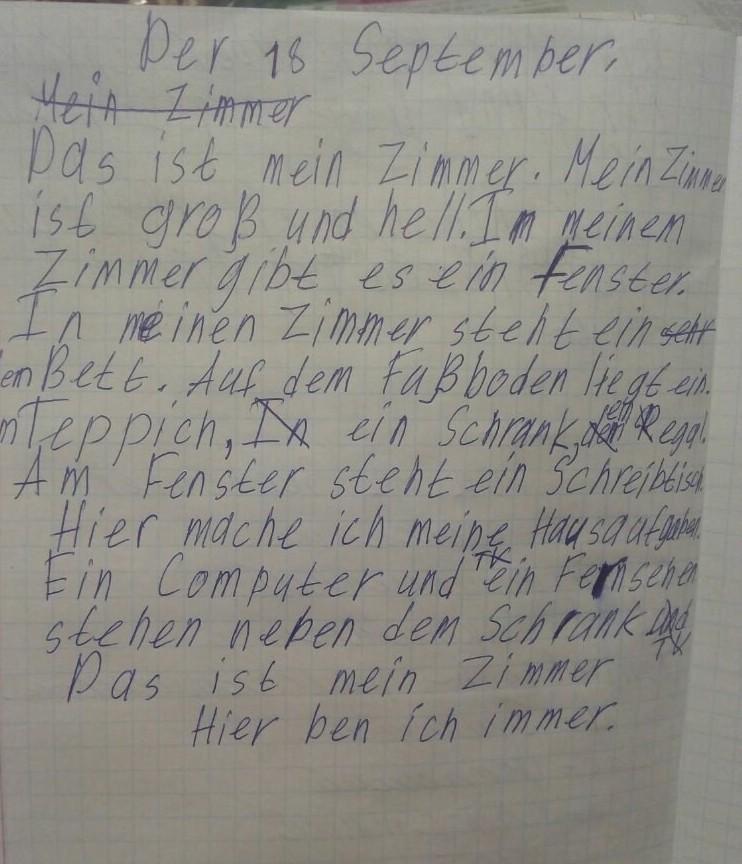 Der 18 September.
Mein Zimmer
Das ist mein Zimmer. Mein Zimmer
ist groß und hell. Im meinem
Zimmer gibt es ein Fenster.
In meinen Zimmer steht ein sehr
em Bett. Auf dem Fußboden liegt ein.
m Teppich, In ein Schrank, Regal.
Am Fenster steht ein Schreibtisch.
Hier mache ich meine Hausaufgaben.
Ein Computer und ein Fernsehen
stehen neben dem Schrank
Das ist mein Zimmer
Hier ben ich immer.